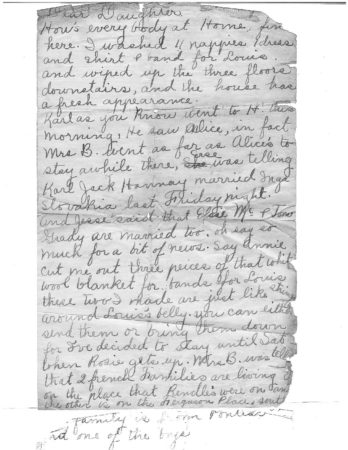 Dear Daughter
Hows every body at Home, fine
here. I washed 4 nappies 1 dress
and shirt & band for Louis.
and wiped up the three floors
downstairs, and the house has
a fresh appearance.
Karl as you know went to H this
morning. He saw Alice, in fact
Mrs B. went as far as Alices to
stay awhile there, Jesse was telling
Karl Jack Hannay married Inga
Slovakia last Friday night.
and Jesse said that Elsie Mc &
Grady are married too. oh say so
much for a bit of news. Say Annie
cut me out three pieces of that white
wool blanket for bands for Louis
these two I made are just like
around Louis's belly. you can either
send them or bring them down
for I've decided to stay until Sat
when Rosie gets up. Mrs B. was
that 2 french Families are living
on the place that Rendles were on
the other is on the Ferguson Place,
Family is from Pontiac
and one of the boys